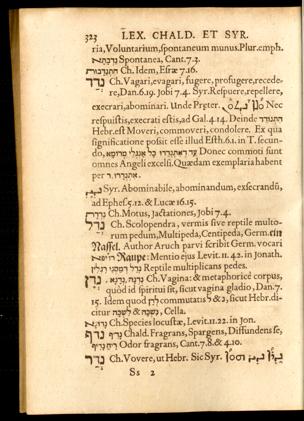 323 LEX. CHALD. ET SYR.
ria, Voluntarium, spontaneum munus. Plur. emph.
Spontanea, Cant.7.3.
Ch. Idem, Esræ 7.16.
נדד Ch. Vagari, evagari, fugere, profugere, recede-
re, Dan.6.19. Jobi 7.4. Syr. Respuere, repellere,
execrari, abominari. Unde Præter. Nec
respuistis, execrati estis, ad Gal.4.14. Deinde התנודד
Hebr. est Moveri, commoveri, condolere. Ex qua
significatione possit esse illud Esth.6.1. in T. secun-
do, Donec commoti sunt
omnes Angeli excelsi. Quædam exemplaria habent
per ר
Syr. Abominabile, abominandum, exsecrandū,
ad Ephes.5.12. & Lucæ 16.15.
Ch. Motus, jactationes, Jobi 7.4.
נדל Ch. Scolopendra, vermis sive reptile multo-
rum pedum, Multipeda, Centipeda, Germ. ein
Nassel. Author Aruch parvi scribit Germ. vocari
Raupe: Mentio ejus Levit.11.42. in Jonath.
Reptile multiplicans pedes.
נדן Ch. Vagina: & metaphoricè corpus,
quòd id spiritui sit, sicut vagina gladio, Dan.7.
15. Idem quod לדן commutatis ל & נ, sicut Hebr. di-
citur נשכה & לשכה, Cella.
Ch. Species locustæ, Levit.11.22. in Jon.
נדף Chald. Fragrans, Spargens, Diffundens se,
Odor fragrans, Cant.7.8. & 4.10.
נדר Ch. Vovere, ut Hebr. Sic Syr.
Ss 2